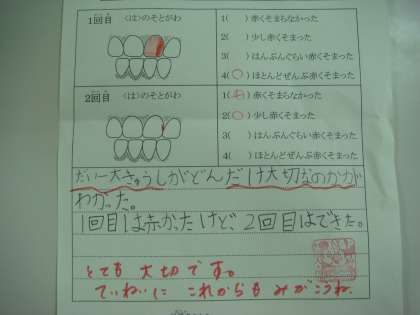 1回目 <は>のそとがわ
1( )赤くそまらなかった
2( )少し赤くそまった
3( )はんぶんぐらい赤くそまった
4(○)ほとんどぜんぶ赤くそまった
2回目 <は>のそとがわ
1( )赤くそまらなかった
2(○)少し赤くそまった
3( )はんぶんぐらい赤くそまった
4( )ほとんどぜんぶ赤くそまった
だい一大きゅうしがどんだけ大切なのかが
わかった。
1回目は赤かったけど、2回目はできた。
とても 大切です。
ていねいに これからも みがこうね